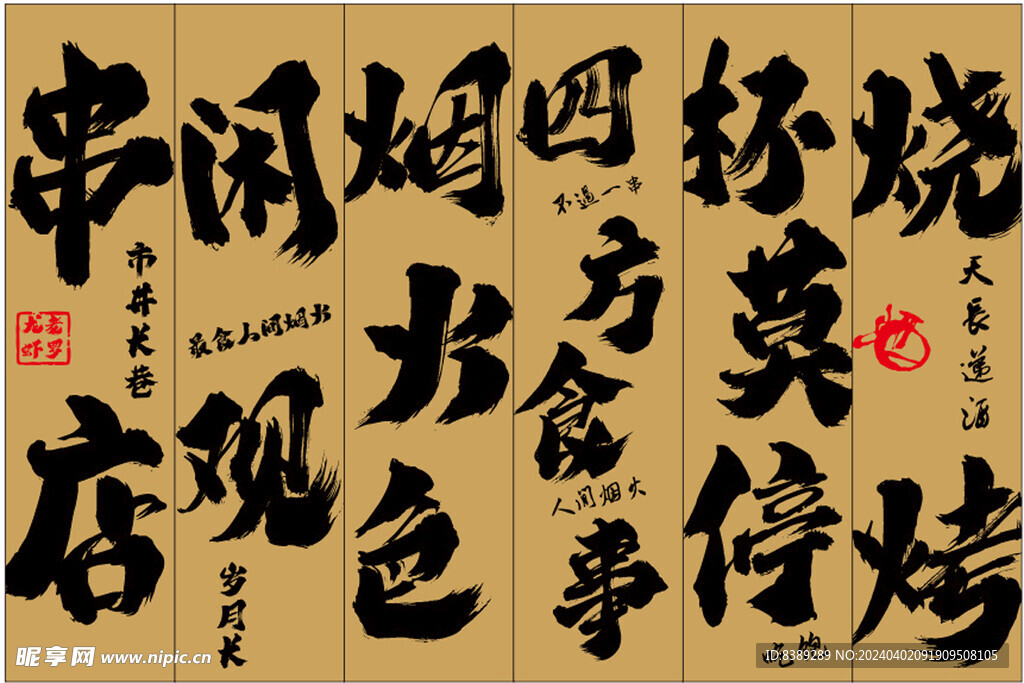 烧烤
天長
酒
杯莫停
四方食事
不過一串
人间烟火
烟火色
闲观
最食人间烟火
岁月长
串店
市井长巷
老罗
龙虾
昵享网 www.nipic.cn
ID:8389289 NO:20240402091909508105